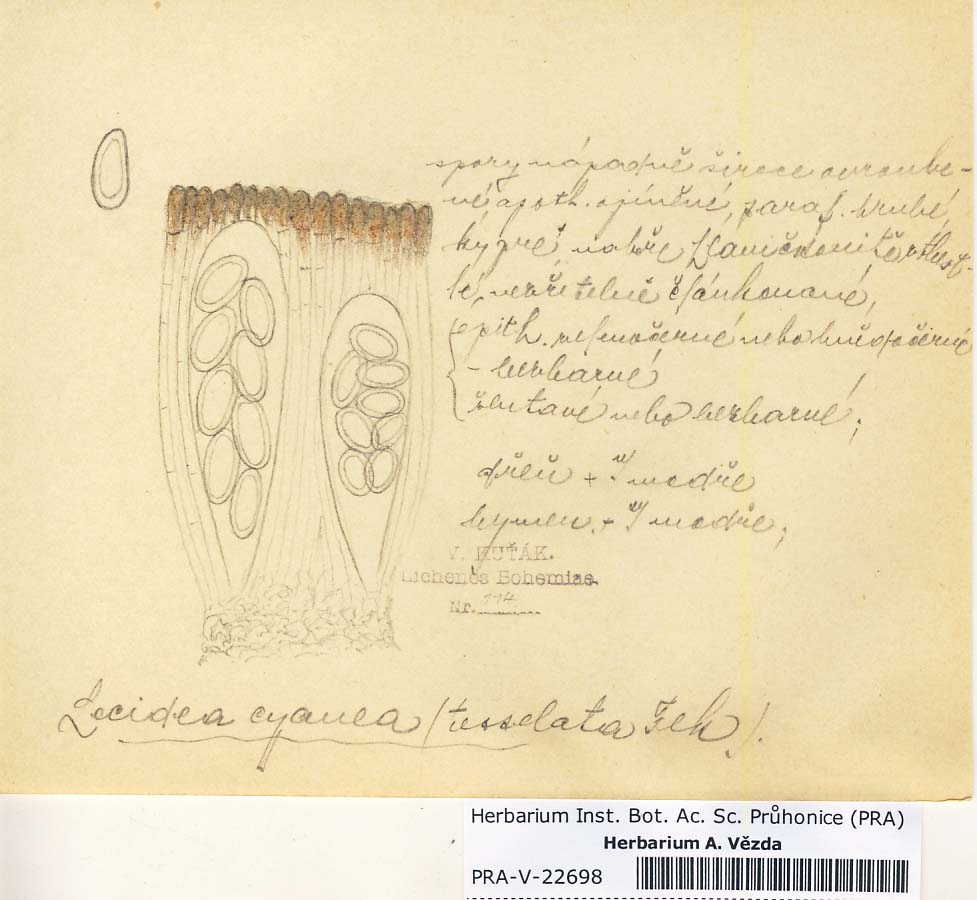 spory nápadně široce ovroube-
né apoth. ojíněné, paraf. hrubé,
kypré, nahoře
lé, nezřetelně článkované,
epith. nebo
- bezbarvé
žlutavé nebo bezbarvé;
dřeň + J modře
hymen. + J modře;
V. KUŤÁK.
Lichenes Bohemiae.
Nr. 114
Lecidea cyanea (tesselata Flk.).
Herbarium Inst. Bot. Ac. Sc. Průhonice (PRA)
Herbarium A. Vězda
PRA-V-22698